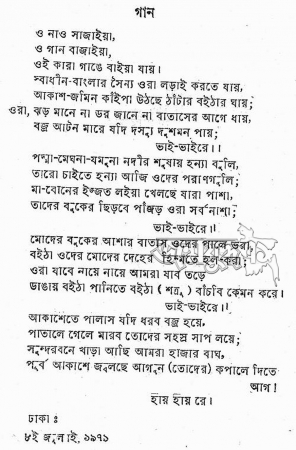 গান
ও নাও সাজাইয়া,
ও গান বাজাইয়া,
ওই কারা গাঙে বাইয়া যায়।
স্বাধীন-বাংলার সৈন্য ওরা লড়াই করতে যায়,
আকাশ-জমিন কাঁইপা উঠছে ঠাঁটার বইঠার ঘায়;
ওরা, ঝড় মানে না ডর জানে না বাতাসের আগে ধায়,
বজ্র আটন মারে যদি দস্যু দুশমন পায়;
ভাই-ভাইরে।।
পদ্মা-মেঘনা-যমুনা নদীর শূন্যায় হন্যা বলি,
তারো চাইতে হন্যা আজি ওদের পরাণগুলি;
মা-বোনের ইজ্জত লইয়া খেলছে যারা পাশা,
তাদের বুকের ছিঁড়বে পাঁজড় ওরা সর্বনাশা;
ভাই-ভাইরে।।
মোদের বুকের আশার বাতাস ওদের পালে ভরা,
বইঠা ওদের মোদের দেহের হিম্মতে হল-করা;
ওরা যাবে নায়ে নায়ে আমরা যাব তড়ে
ডাঙায় বইঠা পানিতে বইঠা (শত্রু) বাঁচবি কেমন করে।
ভাই-ভাইরে।।
আকাশেতে পালাস যদি ধরব বজ্র হয়ে,
পাতালে গেলে মারব তোদের সহস্র সাপ লয়ে;
সুন্দরবনে খাড়া আছি আমরা হাজার বাঘ,
পূর্ব আকাশে জ্বলছে আগুন (তোদের) কপালে দিতে
আগ!
হায় হায় রে।
ঢাকাঃ
৮ই জুলাই, ১৯৭১